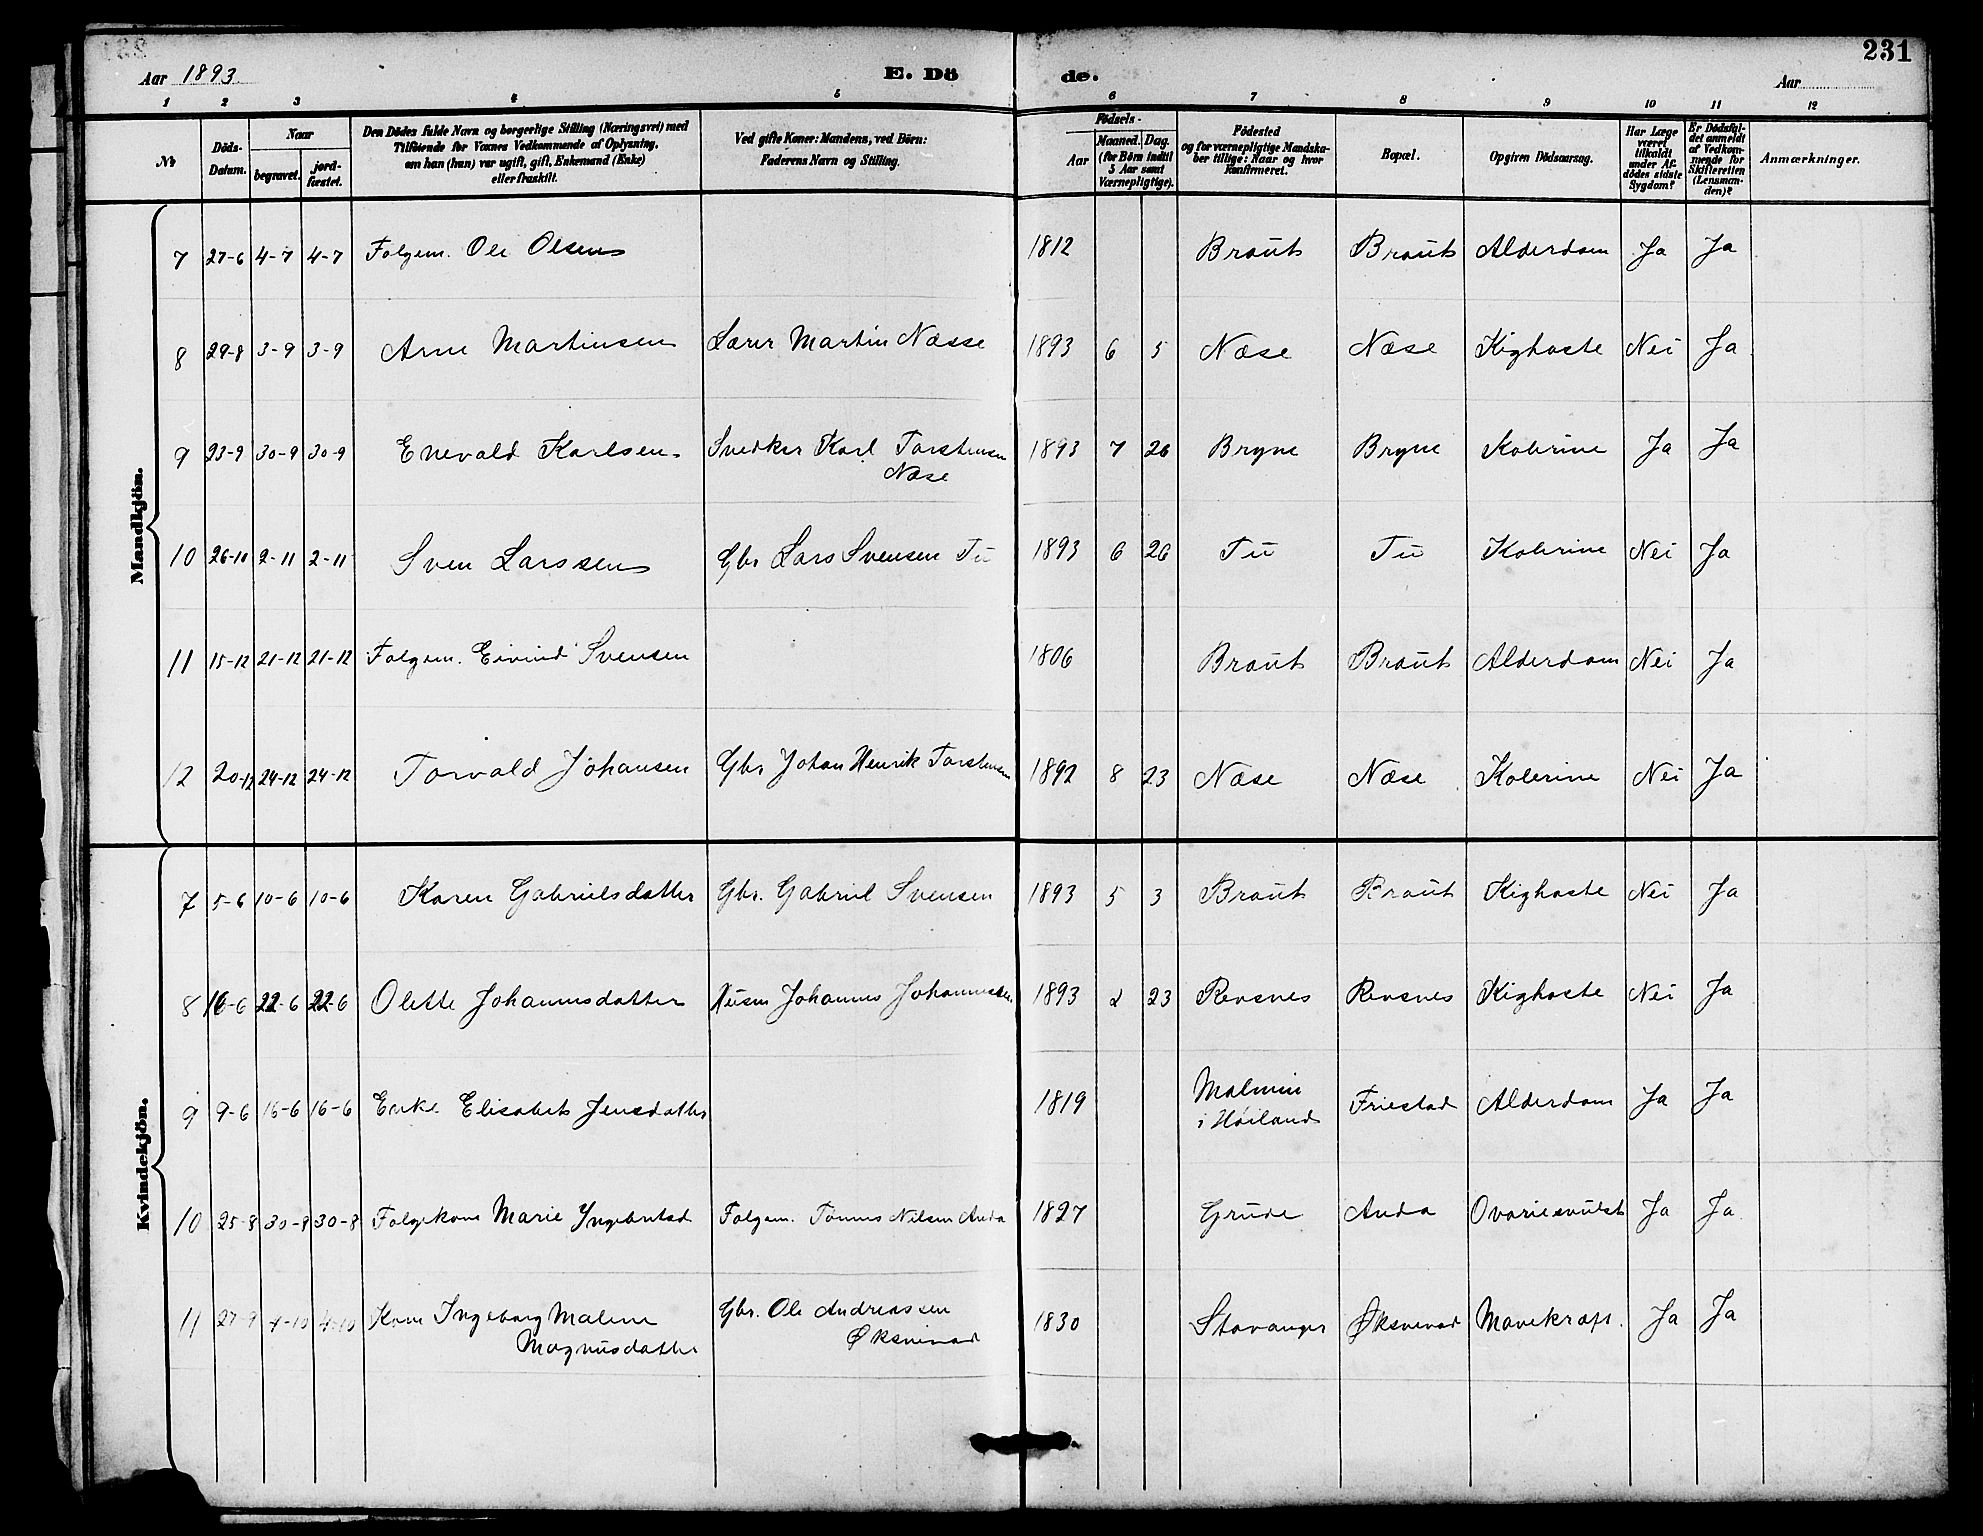 231
Aar 1893.
E. Dö de.
Aar
1 2 3 4 5 6 7 8 9 10 11 12
№ Döds-Datum. Naar begravet. jord-fæstet. Den Dödes fulde Navn og borgerlige Stilling (Næringsvei) med Tilföiende for Voxnes Vedkommende af Oplysning, om han (hun) var ugift, gift, Enkemand (Enke) eller fraskilt. Ved gifte Koner: Mandens, ved Börn: Faderens Navn og Stilling. Födsels- Aar Maaned. Dag. (for Börn indtil 5 Aar samt Værnepligtige). Födested og for værnepligtige Mandskaber tillige: Naar og hvor konfirmeret. Bopæl. Opgiven Dödsaarsag. Har Læge været tilkaldt under Afdödes sidste Sygdom? Er Dödsfaldet anmeldt af Vedkommende for Skifteretten (Lensmanden)? Anmærkninger.
Mandkjön.
7 27-6 4-7 4-7 Folgem. Ole Olsen 1812 Braut Braut Alderdom Ja Ja
8 29-8 3-9 3-9 Arne Martinsen Lærer Martin Næsse 1893 6 5 Næse Næse Kighoste Nei Ja
9 23-9 30-9 30-9 Enevald Karlsen Snedker Karl Torstensen 1893 7 26 Bryne Bryne Kolerine Ja Ja
Næse
10 26-10 2-11 2-11 Sven Larssen Gbr Lars Svensen Tu 1893 6 26 Tu Tu Kolerine Nei Ja
11 15-12 21-12 21-12 Folgem. Eivind Svensen 1806 Braut Braut Alderdom Nei Ja
12 20-12 24-12 24-12 Torvald Johansen Gbr Johan Henrik Torstensen 1892 8 23 Næse Næse Kolerine Nei Ja
Kvindekjön.
7 5-6 10-6 10-6 Karen Gabrielsdatter Gbr. Gabriel Svensen 1893 5 3 Braut Braut Kighoste Nei Ja
8 16-6 22-6 22-6 Olette Johannesdatter Husm Johannes Johannessen 1893 2 23 Revsnes Revsnes Kighoste Nei Ja
9 9-6 16-6 16-6 Enke Elisabet Jensdatter 1819 Malmin i Høiland Friestad Alderdom Ja Ja
10 25-8 30-8 30-8 Folgekone Marie Yngebretsd Folgem. Tønnes Nilsen Anda 1827 Grude Anda Ovariesvulst Ja Ja
11 27-9 4-10 4-10 Kone Ingeborg Malene Gbr. Ole Andreassen 1830 Stavanger Øksnevad Mavekræft. Ja Ja
Magnusdatter Øksnevad